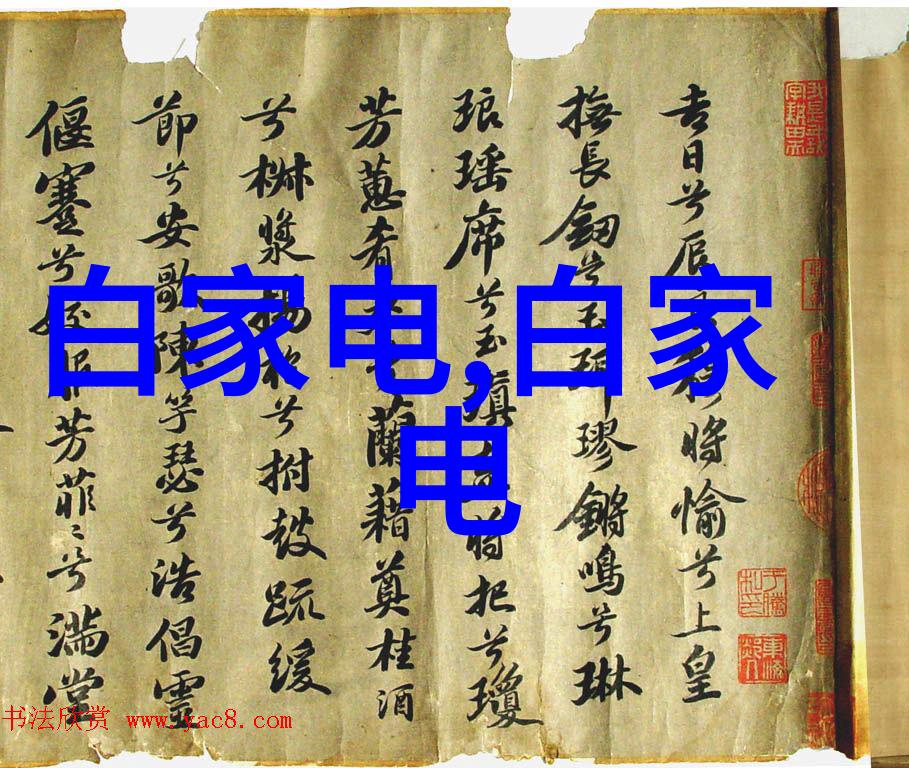 吉日兮辰穆將愉兮上皇
撫長劒兮玉珥璆鏘鳴兮琳
琅瑶席兮玉瑱將把兮瓊
芳蕙肴蘭藉奠桂酒
兮椒漿揚枹兮拊鼓疏緩
節兮安歌陳竽瑟兮浩倡靈
偃蹇兮姣服芳菲々兮滿堂
白家电,白家
电
书法欣赏 www.yac8.com